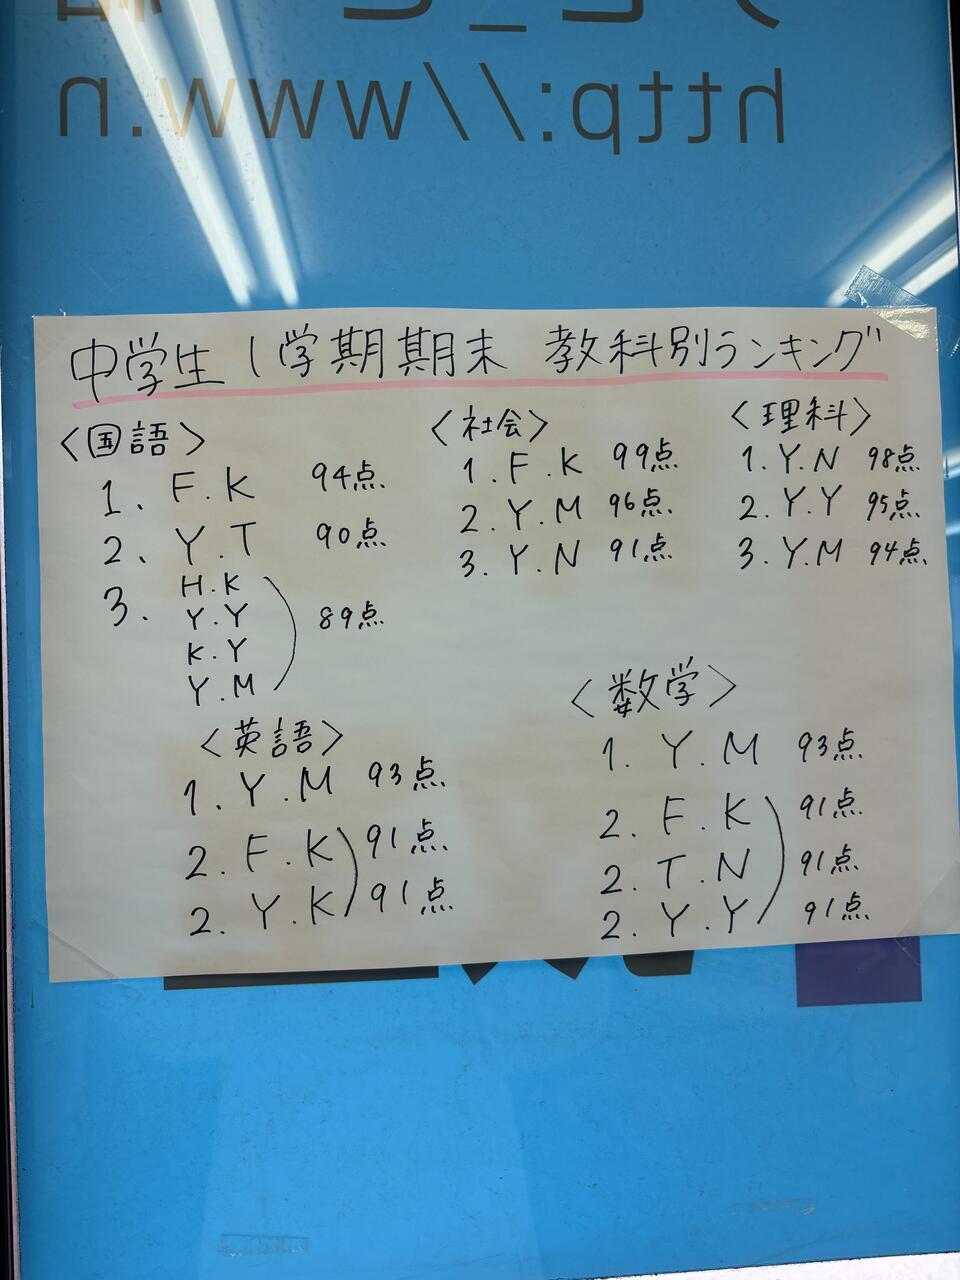 http://www.n
中学生 1学期期末 教科別ランキング
〈国語〉
1、F.K 94点
2、Y.T 90点
3. H.K
Y.Y
K.Y
Y.M
89点
〈社会〉
1. F.K 99点
2. Y.M 96点
3. Y.N 91点
〈理科〉
1. Y.N 98点
2. Y.Y 95点
3. Y.M 94点
〈英語〉
1. Y.M 93点
2. F.K 91点
2. Y.K 91点
〈数学〉
1. Y.M 93点
2. F.K 91点
2. T.N 91点
2. Y.Y 91点